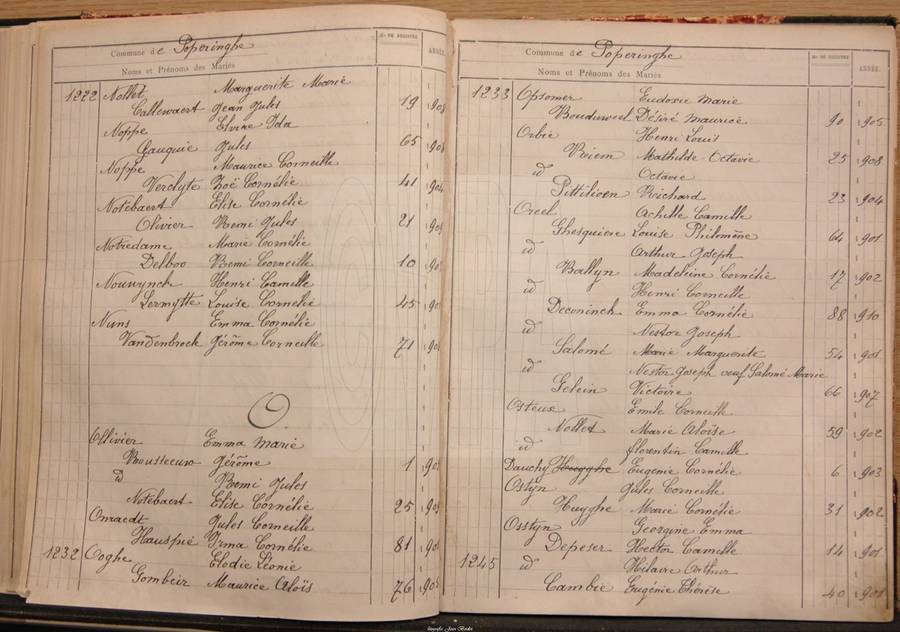 Commune de Poperinghe
Nº DE REGISTRE
ANNÉE
Noms et Prénoms des Mariés
1222 Nollet Marguerite Marie
Callewaert Jean Jules 19
Noppe Elvire Ida
Cauquie Jules 65
Noppe Maurice Corneille
Verclyte Zoë Cornélie 41 904
Notebaert Elise Cornélie
Olivier Remi Jules 21
Notredame Marie Cornélie
Delboo Remi Corneille 10
Nouwynck Henri Camille
Lermytte Louise Cornélie 45
Nuns Emma Cornélie
Vandenbrock Gérôme Corneille 71
O
Ollivier Emma Marie
Rousseeuw Gérôme 1
id Remi Jules
Notebaert Elise Cornélie 25
Omraedt Jules Corneille
Hauspié Irma Cornélie 81
1232 Ooghe Elodie Léonie
Gombeir Maurice Aloïs 76
Commune de Poperinghe
Nº DE REGISTRE
ANNÉE
Noms et Prénoms des Mariés
1233 Opsomer Eudoxie Marie
Désiré Maurice 90 905
Orbie Henri Louis
Riem Mathilde Octavie 25 908
id Octavie
Pittilioen Richard 23 904
Oreel Achille Camille
Ghesquiere Louise Philomène 64 901
id Arthur Joseph
Ballyn Madeleine Cornélie 17 902
id Henri Corneille
Deconinck Emma Cornélie 88 910
id Nestor Joseph
Salomé Marie Marguerite 54 901
id Nestor Joseph veuf Salomé Marie
Gelein Victoire 66 907
Osteux Emile Corneille
Nollet Marie Aloïse 59 902
id Florentin Camille
Dauchy Huyghe Eugenie Cornélie 6 903
Ostyn Jules Corneille
Huyghe Marie Cornélie 31 902
Osstyn Georgine Emma
Depeser Hector Camille 14 901
1245 id Hilaire Arthur
Cambie Eugénie Thérèse 40 901